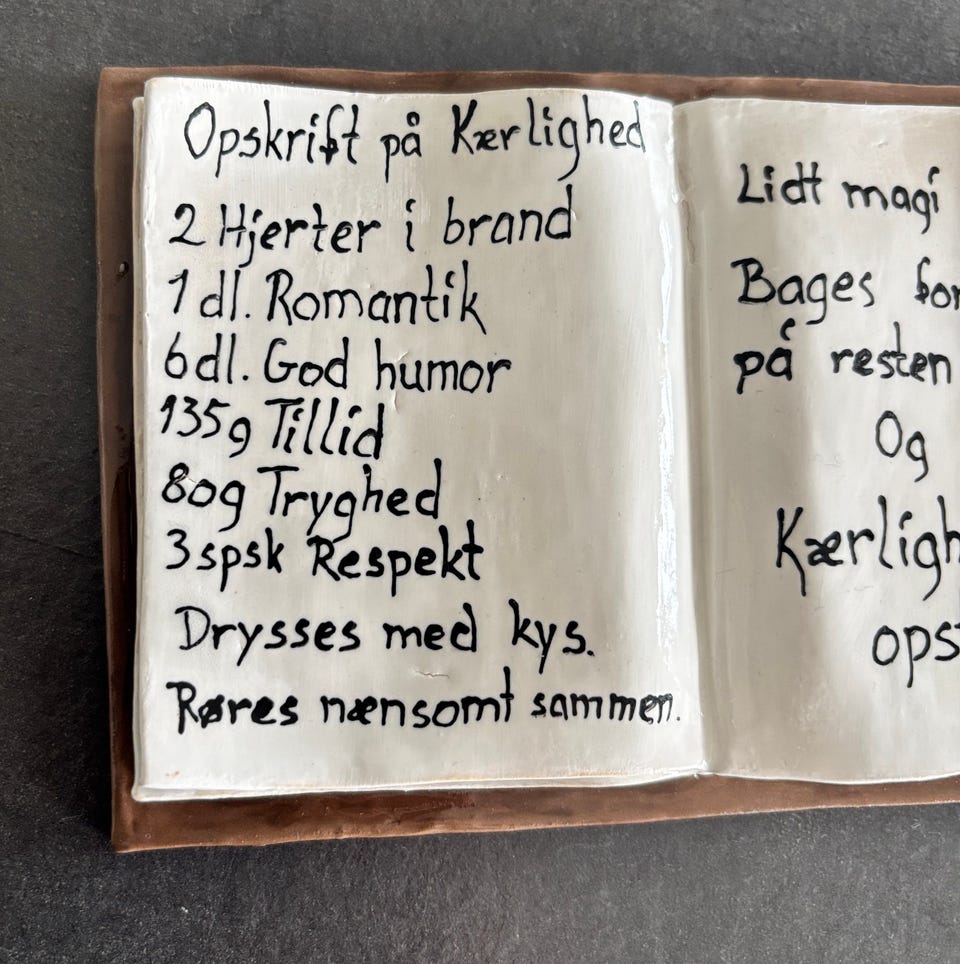 Opskrift på Kærlighed
2 Hjerter i brand
1 dl. Romantik
6 dl. God humor
135g Tillid
80g Tryghed
3 spsk Respekt
Drysses med kys.
Røres nænsomt sammen.
Lidt magi
Bages
på resten
Og